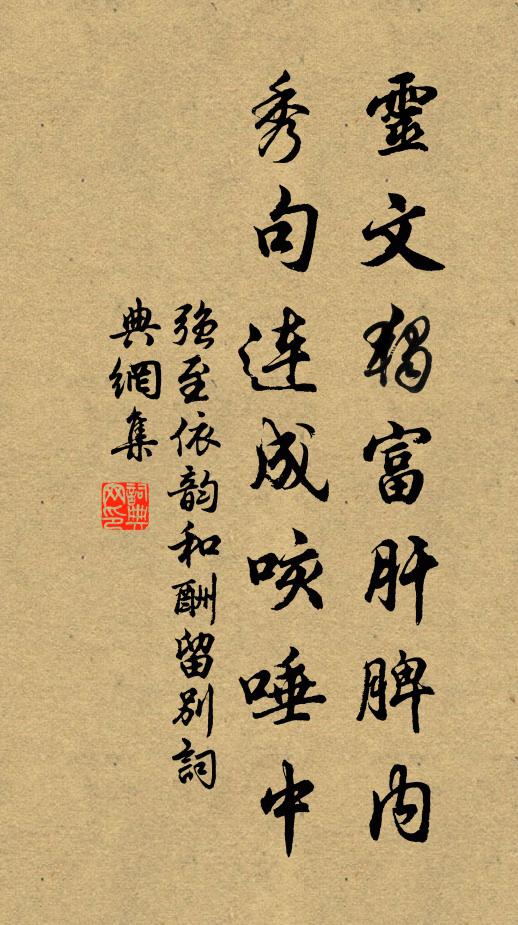 靈文獨富肝脾内
秀句連成咳唾中
强至依韵和酬留别詞
典網集
詞典
网印